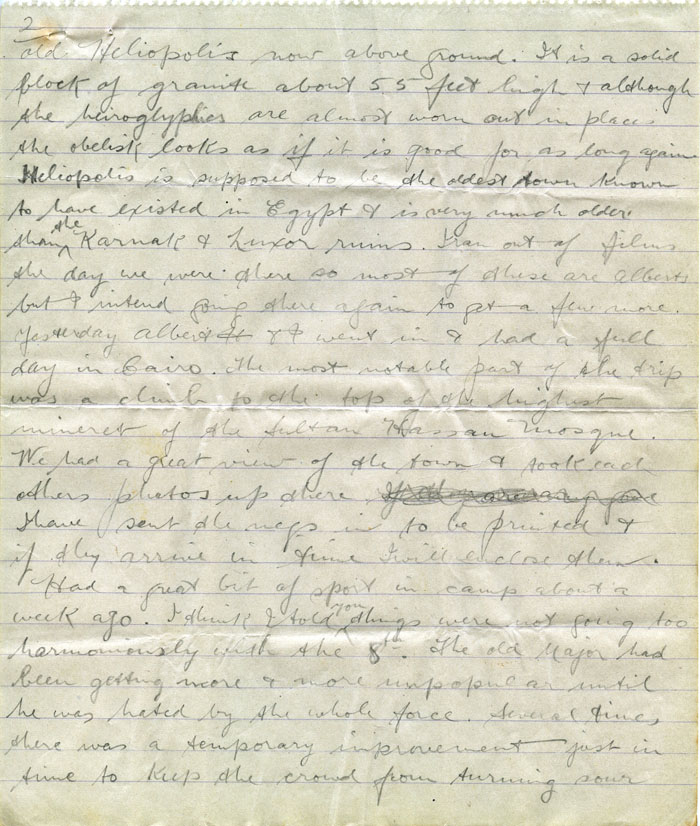 2
old Heliopolis now above ground. It is a solid
block of granite about 55 feet high & although
the heiroglyphics are almost worn out in places
the obelisk looks as if it is good for as long again
Heliopolis is supposed to be the oldest town known
to have existed in Egypt & is very much older
than the Karnak & Luxor ruins. I ran out of films
the day we were there so most of these are Alberts
but I intend going there again to get a few more.
Yesterday Albert & I went in & had a full
day in Cairo. The most notable part of the trip
was a climb to the top of the highest
mineret of the Sultan Hassan Mosque.
We had a great view of the town & took each
others photos up there
I have sent the negs in to be printed &
if they arrive in time I will enclose them.
Had a great bit of sport in camp about a
week ago. I think I told you things were not going too
harmoniously with the 8th. The old Major had
been getting more & more unpopular until
he was hated by the whole force. Several times
there was a temporary improvement just in
time to keep the crowd from turning sour